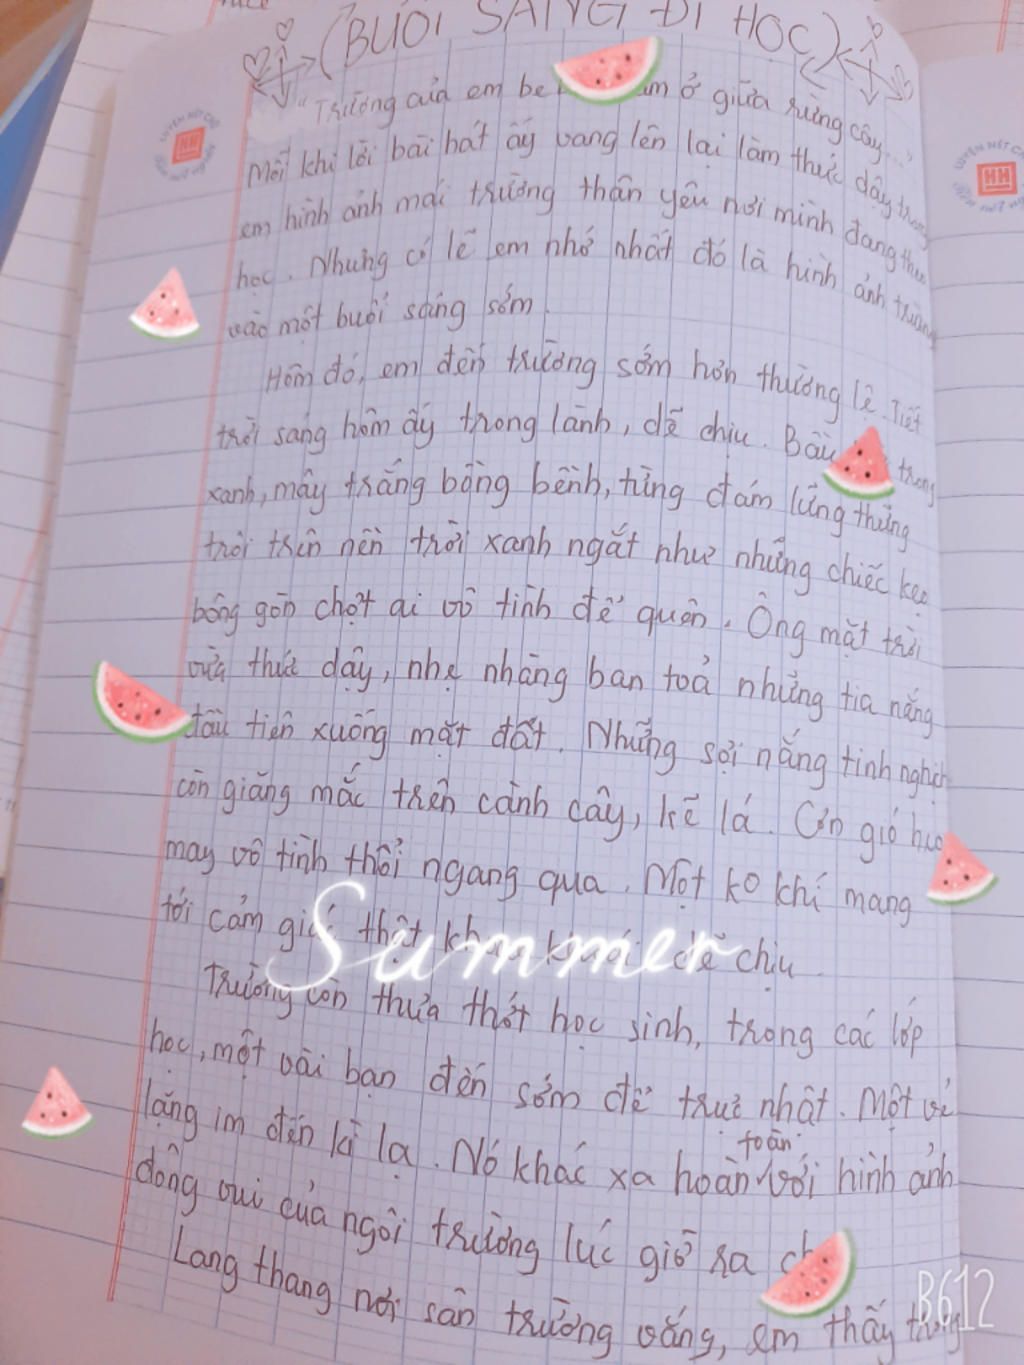 (BUỔI SÁNG ĐI HỌC)
"Trường của em be ở giữa rừng cây..."
Mỗi khi lời bài hát ấy vang lên lại làm thức dậy trong
em hình ảnh mái trường thân yêu nơi mình đang theo
học. Nhưng có lẽ em nhớ nhất đó là hình ảnh trường
vào một buổi sáng sớm.
Hôm đó, em đến trường sớm hơn thường lệ. Tiết
trời sáng hôm ấy trong lành, dễ chịu. Bầu trong
xanh, mây trắng bồng bềnh, từng đám lững thững
trôi trên nền trời xanh ngắt như những chiếc kẹo
bông gòn chợt ai vô tình để quên. Ông mặt trời
vừa thức dậy, nhẹ nhàng ban toả những tia nắng
đầu tiên xuống mặt đất. Những sợi nắng tinh nghịch
còn giăng mắc trên cành cây, kẽ lá. Cơn gió heo
may vô tình thổi ngang qua. Một ko khí mang
tới cảm giác thật dễ chịu.
Trường còn thưa thớt học sinh, trong các lớp
học, một vài bạn đến sớm để trực nhật. Một vẻ
lặng im đến kì lạ. Nó khác xa hoàn toàn với hình ảnh
đông vui của ngôi trường lúc giờ ra
Lang thang nơi sân trường vắng, em thấy
Summer
LUYỆN NÉT CHỮ
HH
LUYỆN NÉT
HH
B612